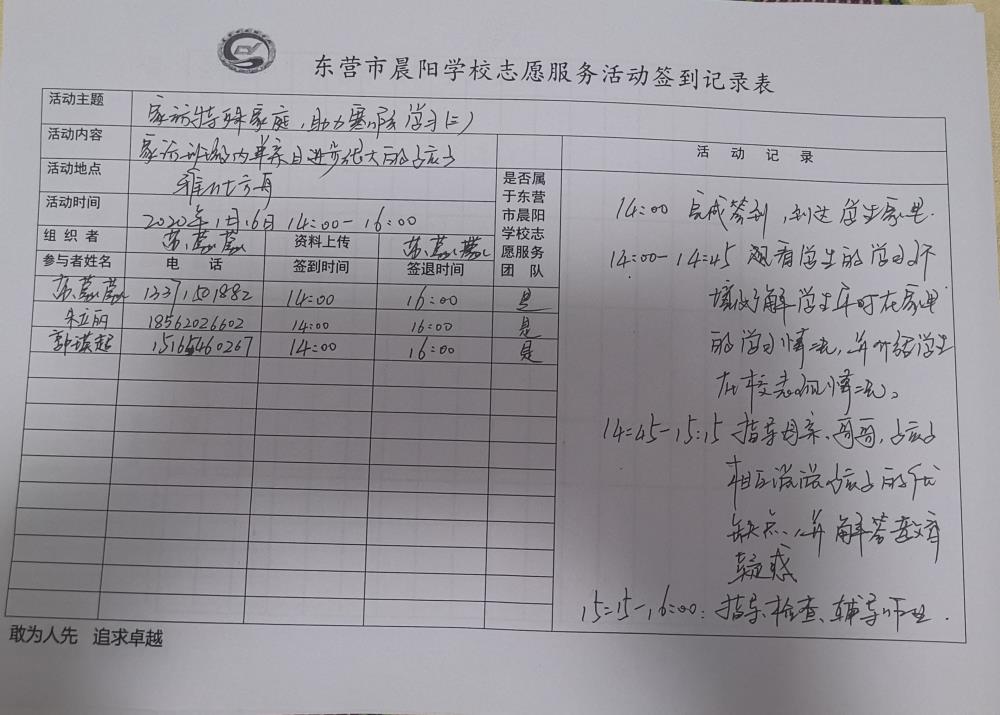 东营市晨阳学校志愿服务活动签到记录表
活动主题 家访特殊家庭，助力寒假学习(二)
活动内容 家访班级内单亲且进步很大的孩子
活动地点
活动时间 2020年1月16日 14:00-16:00
组织者 苏蒙蒙 资料上传 苏蒙蒙
参与者姓名 电话 签到时间 签退时间 是否属于东营市晨阳学校志愿服务团队
苏蒙蒙 13371501882 14:00 16:00 是
朱立丽 18562026602 14:00 16:00 是
郭洪起 15165460267 14:00 16:00 是
活动记录
14:00 完成签到，到达学生家里.
14:00-14:45 观看学生的学习环
境及了解学生平时在家里
的学习情况，并介绍学生
在校表现情况。
14:45-15:15 指导母亲、哥哥、孩子
相互说说孩子的优
缺点，并解答教育
疑惑
15:15-16:00: 指导、检查、辅导作业.
敢为人先 追求卓越